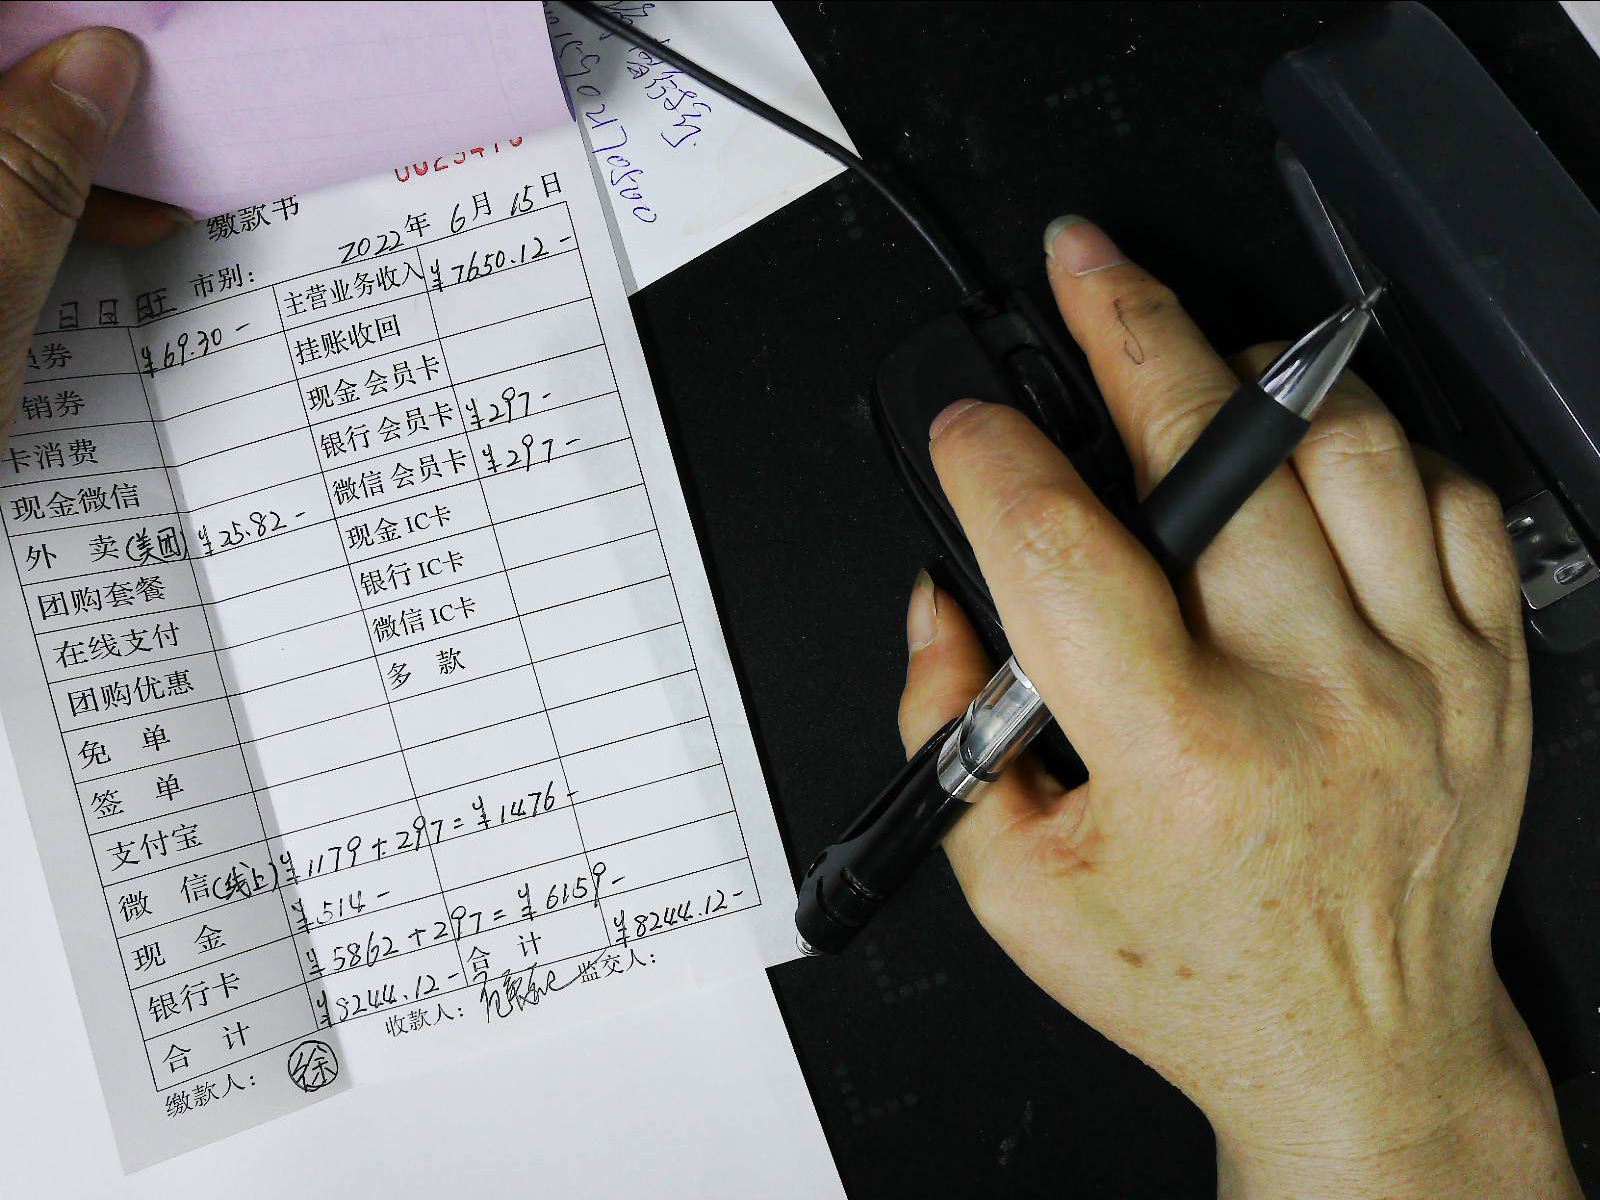 缴款书
2022年 6月 15日
日 日 旺 市别:
券 ¥69.30- 主营业务收入 ¥7650.12-
销券 挂账收回
卡消费 现金会员卡
现金微信 银行会员卡 ¥297-
外 卖(美团) ¥25.82- 微信会员卡 ¥297-
团购套餐 现金IC卡
在线支付 银行IC卡
团购优惠 微信IC卡
免 单 多 款
签 单
支付宝
微 信(线上) ¥1179+297=¥1476-
现 金 ¥514-
银行卡 ¥5862+297=¥6159-
合 计 ¥8244.12- 合 计 ¥8244.12-
缴款人: 徐 收款人: 监交人: